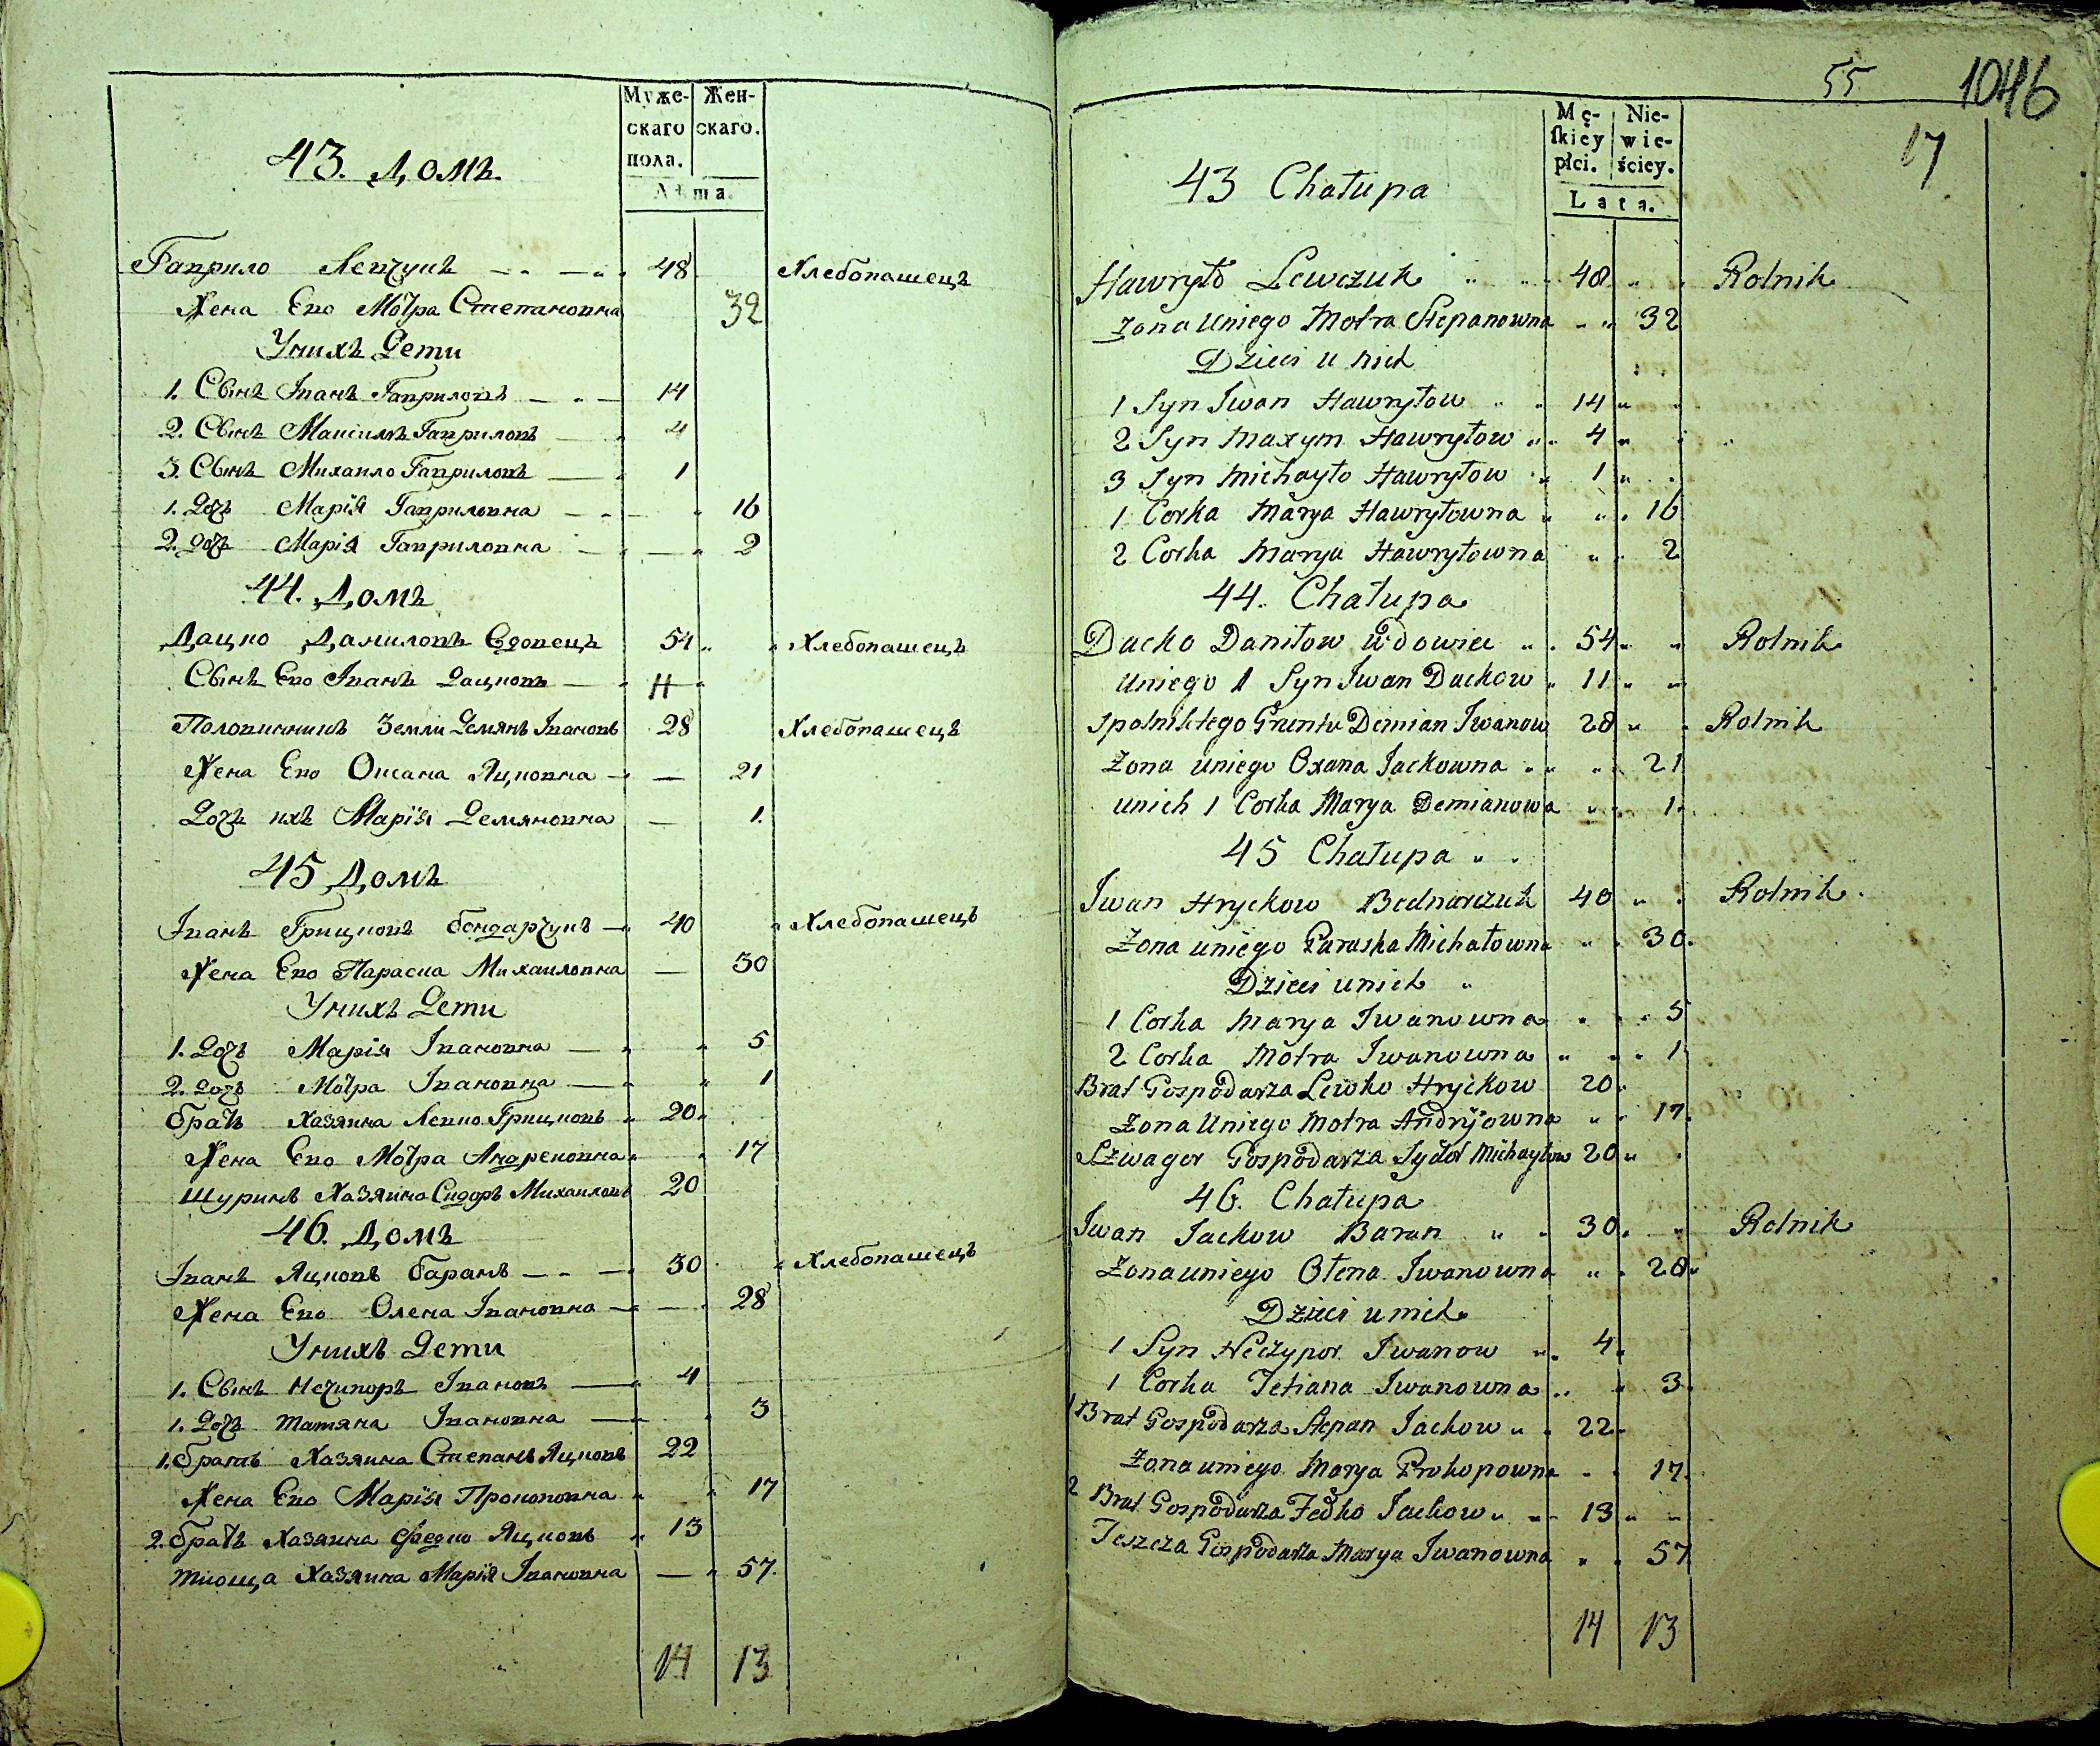 Муже-
скаго
пола.
Жен-
скаго.
Лѣта.
43. Домъ.
Гаврило Левчукъ 48 Хлебопашецъ
Жена Его Мотра Степановна 32
Унихъ Дети
1. Сынъ Іванъ Гавриловъ 14
2. Сынъ Максимъ Гавриловъ 4
3. Сынъ Михаило Гавриловъ 1
1. Дочь Марія Гавриловна 16
2. Дочь Марія Гавриловна 2
44. Домъ
Дацко Даниловъ Вдовецъ 54 Хлебопашецъ
Сынъ Его Іванъ Дацковъ 11
Половинникъ Земли Демянъ Івановъ 28 Хлебопашецъ
Жена Его Оксана Яцковна 21
Дочь ихъ Марія Демяновна 1.
45 Домъ
Іванъ Грицковъ Бондарчукъ 40 Хлебопашецъ
Жена Его Параска Михаиловна 30
Унихъ Дети
1. Дочь Марія Івановна 5
2. Дочь Мотра Івановна 1
Братъ Хазяина Левко Грицковъ 20
Жена Его Мотра Андреновна 17
Шуринъ Хазяина Сидоръ Михаиловъ 20
46. Домъ
Іванъ Яцковъ Баранъ 30 Хлебопашецъ
Жена Его Олена Івановна 28
Унихъ Дети
1. Сынъ Нечипоръ Івановъ 4
1. Дочь Татяна Івановна 3
1. Братъ Хазяина Степанъ Яцковъ 22
Жена Его Марія Прокоповна 17
2. Братъ Хазяина Федко Яцковъ 13
Тиоща Хазяина Марія Івановна 57.
14 13
55 1046
17
Mę-
ſkiey
płci.
Nie-
wie-
ściey.
Lata.
43 Chałupa
Hawryło Lewczuk 48 Rolnik
Zona Uniego Motra Stepanowna 32
Dzieci u nich
1 Syn Iwan Hawryłow 14
2 Syn Maxym Hawryłow 4
3 Syn Michayło Hawryłow 1
1 Corka Marya Hawryłowna 16
2 Corka Marya Hawryłowna 2
44. Chałupa
Dacko Daniłow Wdowiec 54 Rolnik
Uniego 1 Syn Iwan Dackow 11
Spolnik tego Gruntu Demian Iwanow 28 Rolnik
Zona uniego Oxana Jackowna 21
unich 1 Corka Marya Demianowa 1.
45 Chałupa
Iwan Hryckow Bednarczuk 40 Rolnik
Zona uniego Paraska Michałowna 30.
Dzieci unich
1 Corka Marya Iwanowna 5
2 Corka Motra Iwanowna 1
Brat Gospodarza Lewko Hryckow 20
Zona Uniego Motra Andryjowna 17.
Szwagor Gospodarza Sydor Michayłow 20
46. Chałupa
Iwan Jackow Baran 30 Rolnik
Zona uniego Ołena Iwanowna 28
Dzieci unich
1 Syn Neczypor Iwanow 4
1 Corka Tetiana Iwanowna 3
1 Brat Gospodarza Stepan Jackow 22
Zona uniego Marya Prokopowna 17.
2 Brat Gospodarza Fedko Jackow 13
Teszcza Gospodarza Marya Iwanowna 57
14 13